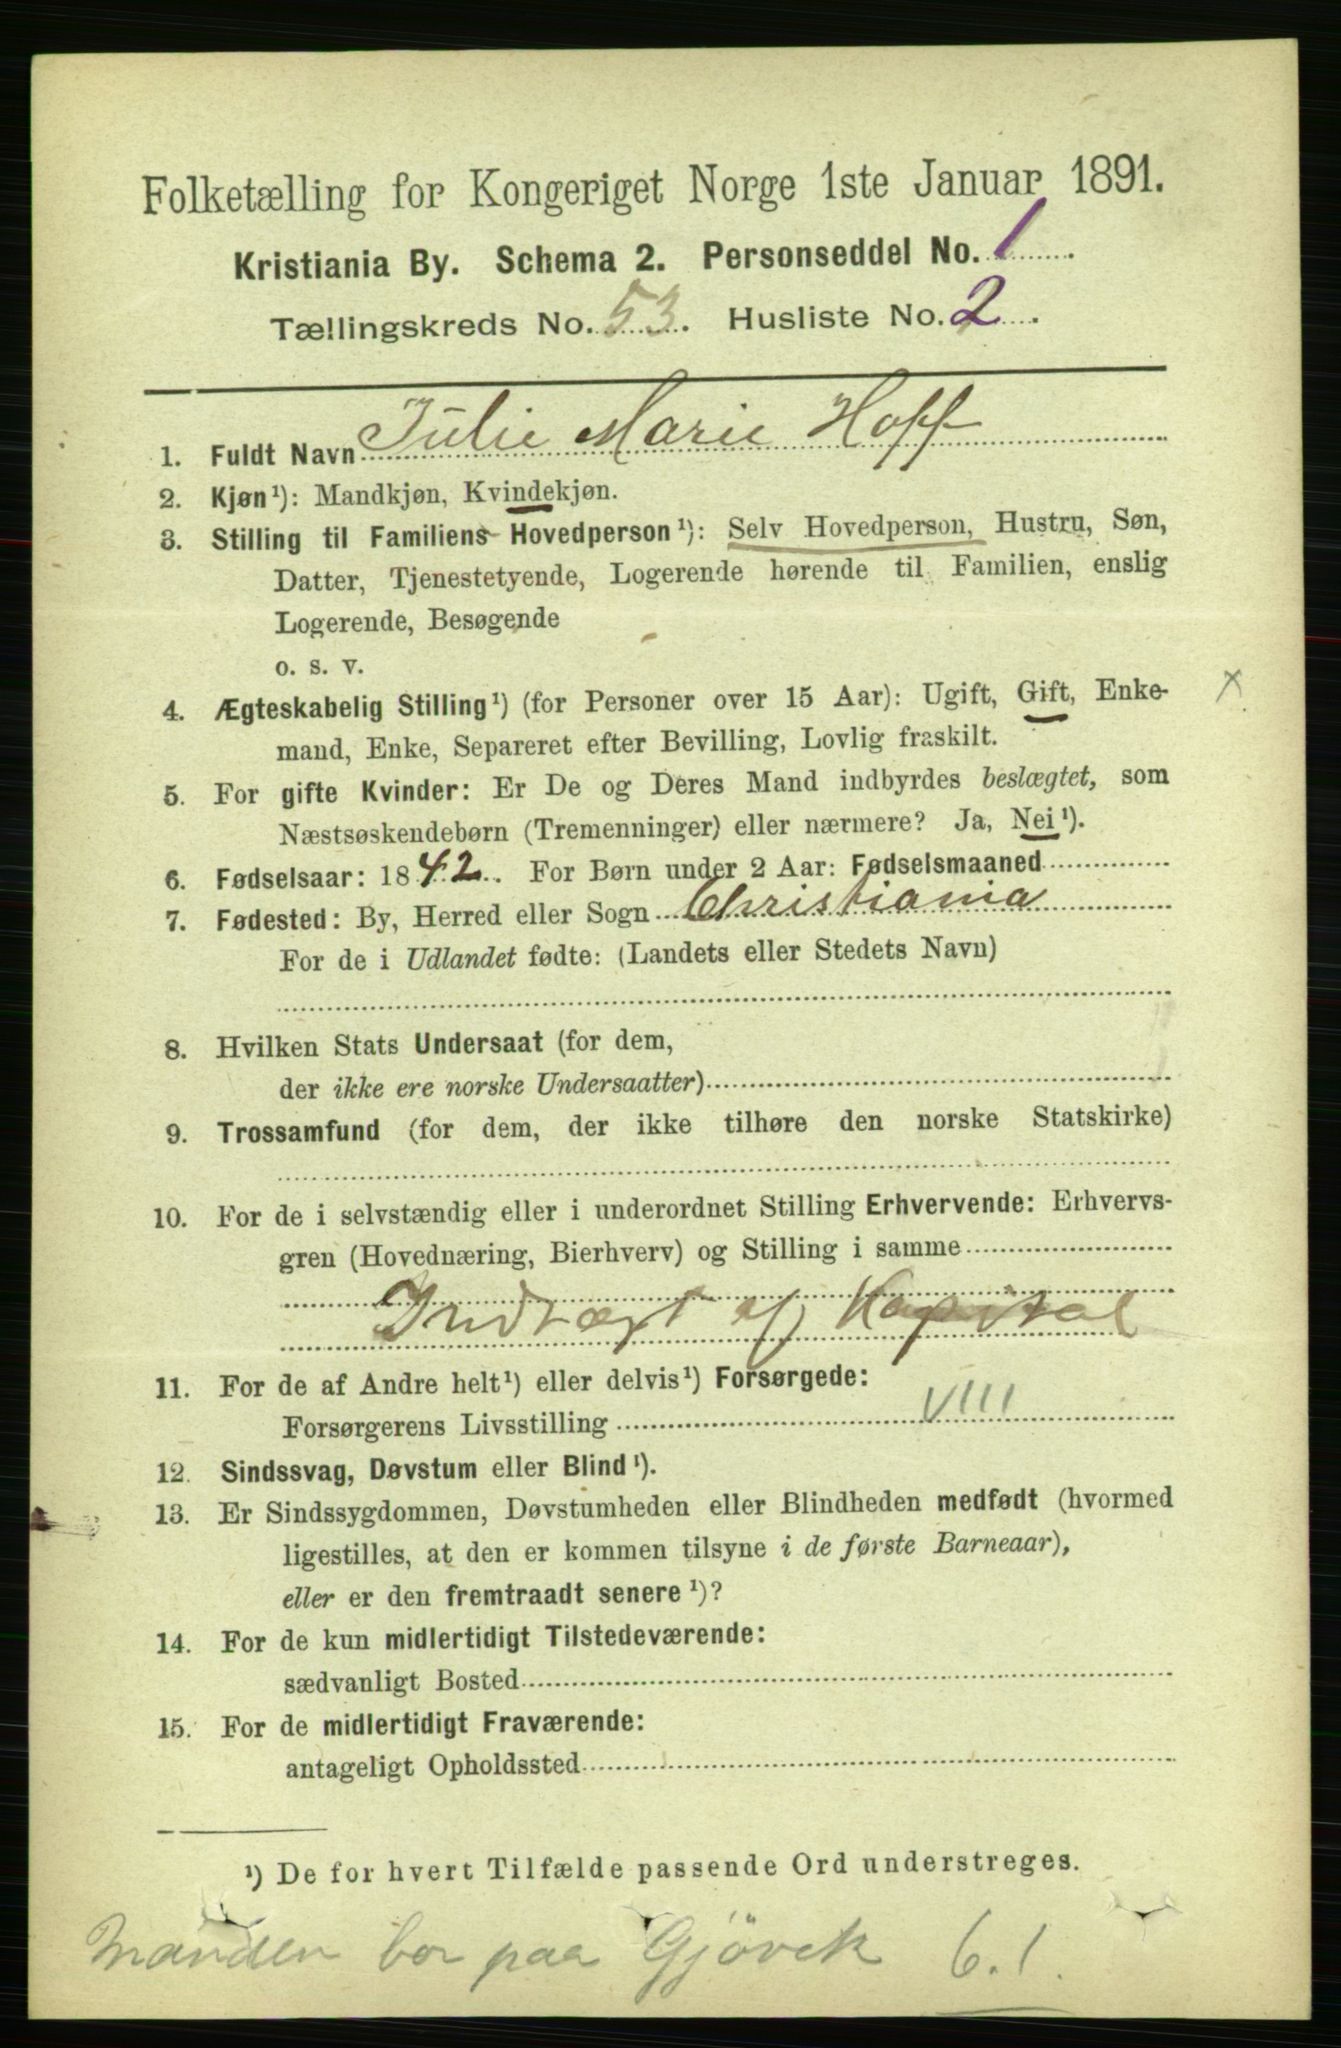 Folketælling for Kongeriget Norge 1ste Januar 1891.
Kristiania By. Schema 2. Personseddel No. 1
Tællingskreds No. 53. Husliste No. 2.
1. Fuldt Navn Julie Marie Hoff
2. Kjøn¹): Mandkjøn, Kvindekjøn.
3. Stilling til Familiens Hovedperson¹): Selv Hovedperson, Hustru, Søn,
Datter, Tjenestetyende, Logerende hørende til Familien, enslig
Logerende, Besøgende
o. s. v.
4. Ægteskabelig Stilling¹) (for Personer over 15 Aar): Ugift, Gift, Enke- x
mand, Enke, Separeret efter Bevilling, Lovlig fraskilt.
5. For gifte Kvinder: Er De og Deres Mand indbyrdes beslægtet, som
Næstsøskendebørn (Tremenninger) eller nærmere? Ja, Nei¹).
6. Fødselsaar: 1842. For Børn under 2 Aar: Fødselsmaaned
7. Fødested: By, Herred eller Sogn Christiania
For de i Udlandet fødte: (Landets eller Stedets Navn)
8. Hvilken Stats Undersaat (for dem,
der ikke ere norske Undersaatter)
9. Trossamfund (for dem, der ikke tilhøre den norske Statskirke)
10. For de i selvstændig eller i underordnet Stilling Erhvervende: Erhvervs-
gren (Hovednæring, Bierhverv) og Stilling i samme
Indtægt af Kapital
11. For de af Andre helt¹) eller delvis¹) Forsørgede:
Forsørgerens Livsstilling VIII
12. Sindssvag, Døvstum eller Blind¹).
13. Er Sindssygdommen, Døvstumheden eller Blindheden medfødt (hvormed
ligestilles, at den er kommen tilsyne i de første Barneaar),
eller er den fremtraadt senere¹)?
14. For de kun midlertidigt Tilstedeværende:
sædvanligt Bosted
15. For de midlertidigt Fraværende:
antageligt Opholdssted
¹) De for hvert Tilfælde passende Ord understreges.
Manden bor paa Gjövik 6.1.